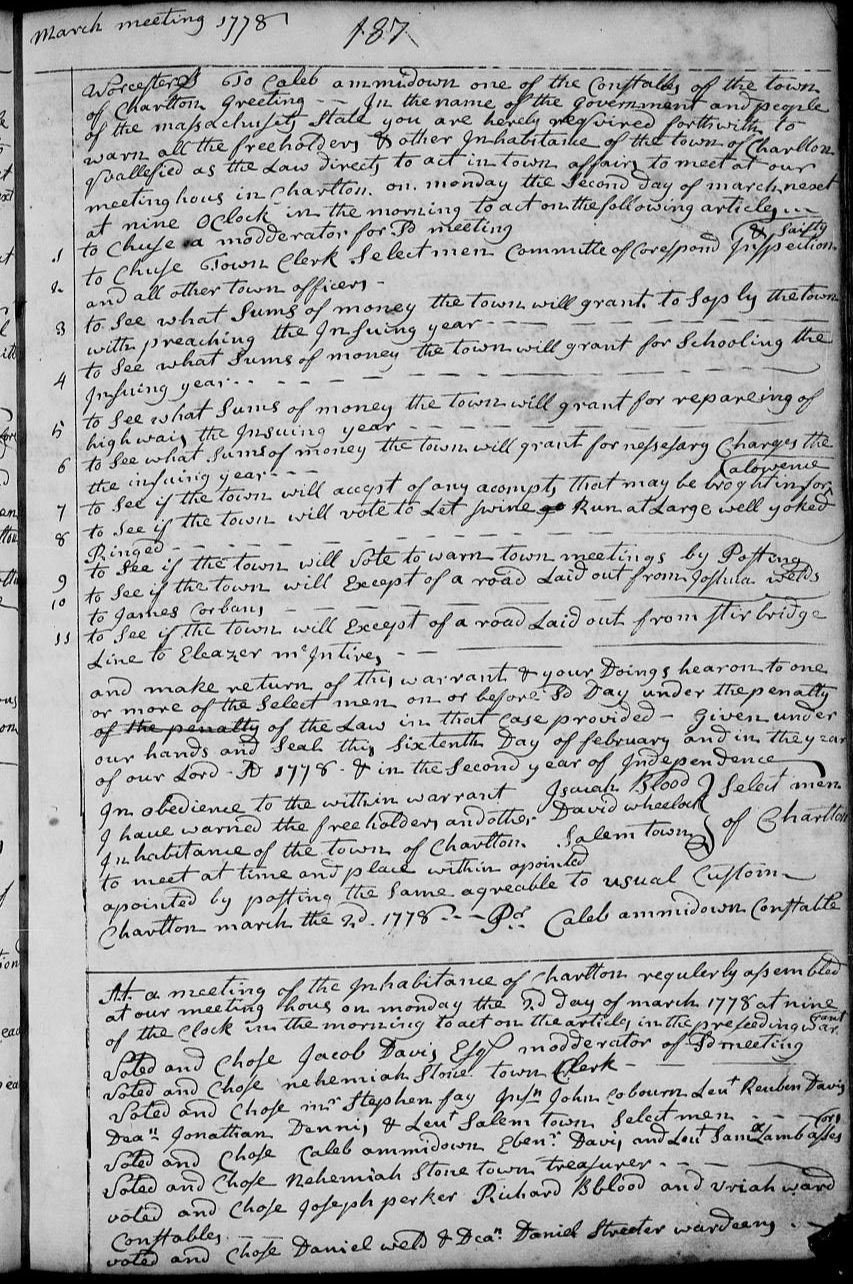 March meeting 1778
187
Worcester Ss To Caleb ammidown one of the Constables of the town
of Charlton Greeting - - In the name of the Government and people
of the massachusits State you are hereby reqvired forthwith to
warn all the freeholders & other Inhabitance of the town of Charlton
qvallefied as the Law directs to act in town affairs to meet at our
meetinghous in Charlton on monday the Second Day of march nexet
at nine OClock in the morning to act on the following articles
1 to Chuse a modderator for Sd meeting
& Saifty
2 to Chuse Town Clerk Select men Committe of Corespond Inspection
and all other town officers -
3 to See what Sums of money the town will grant to Soply the town
with preaching the Insuing year
4 to See what Sums of money the town will grant for Schooling the
Insuing year
5 to See what Sums of money the town will grant for repareing of
high wais the Insuing year
6 to See what Sums of money the town will grant for nessesary Charges the
the insuing year
alowence
7 to See if the town will accept of any acompts that may be broght in for
8 to See if the town will vote to Let swine go Run at Large well yoked
Ringed
9 to See if the town will Vote to warn town meetings by Posting
10 to See if the town will Except of a road Laid out from Joshua welds
to James Corbans
11 to See if the town will Except of a road Laid out from stirbridge
Line to Eleazer mcIntires
and make return of this warrant & your Doings hearon to one
or more of the Select men on or before Sd Day under the penalty
of the penalty of the Law in that Case provided - Given under
our hands and Seals this Sixtenth Day of february and in the year
of our Lord AD 1778 & in the Second year of Independence
In obedience to the within warrant Isaiah Blood
I have warned the freeholders and other David wheelock Select men
Inhabitance of the town of Charlton Salem town of Charlton
to meet at time and place within apointed
apointed by posting the Same agreable to usual Custom
Charlton march the 2d. 1778 - - - Pr Caleb ammidown Constable
At a meeting of the Inhabitance of Charlton regulerly assembled
at our meeting hous on monday the 2d Day of march 1778 at nine
of the Clock in the morning to act on the articles in the preseeding war
rant
Voted and Chose Jacob Davis Esqr modderator of Sd meeting
Voted and Chose nehemiah Stone town Clerk
Voted and Chose mr Stephen fay Insn John Cobourn Leut Reuben Davis
Dean Jonathan Dennis & Leut Salem town Select men
Voted and Chose Caleb ammidown Ebenr Davis and Leut Saml Lamb asses
ors
Voted and Chose Nehemiah Stone town treasurer
voted and Chose Joseph perker Richard Bblood and Uriah ward
Constables
voted and Chose Daniel weld & Dean Daniel Streeter wardeens